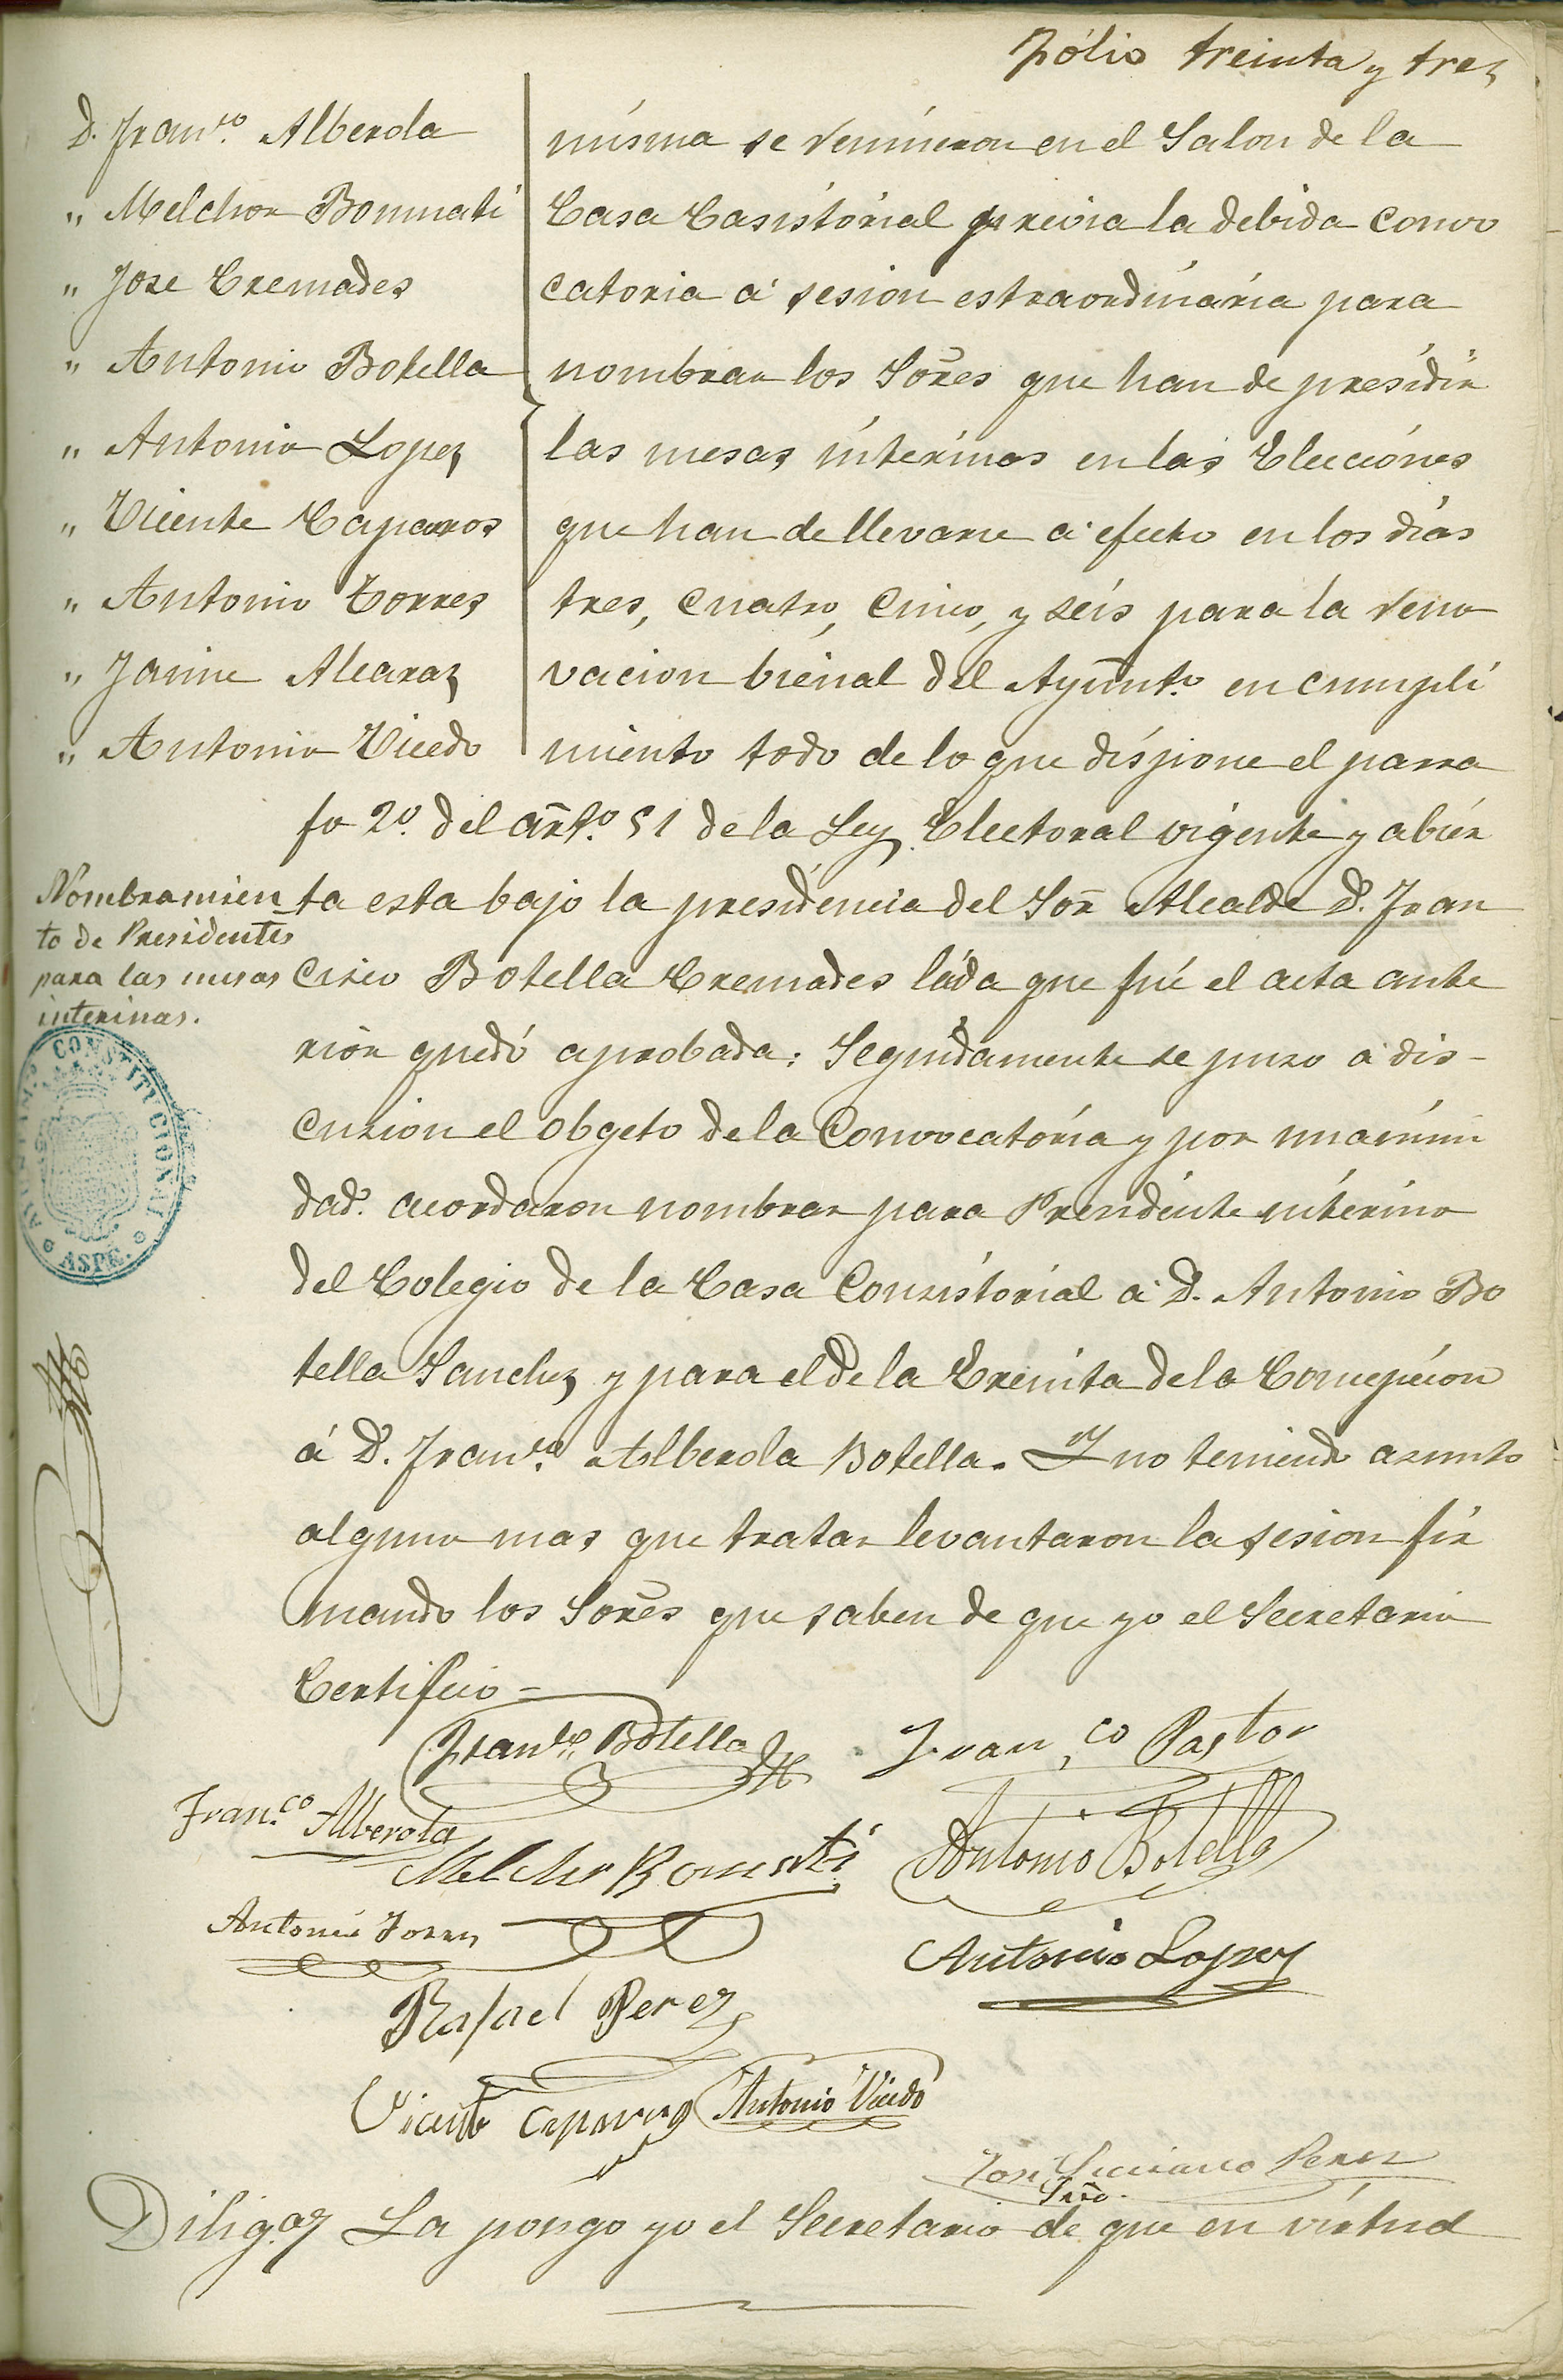 Fólio treinta y tres
D. Fran.co Alberola
„ Melchor Bonmati
„ Jose Cremades
„ Antonio Botella
„ Antonio Lopez
„ Vicente Caparros
„ Antonio Torres
„ Jaime Alcaraz
„ Antonio Vicedo
misma se reunieron en el Salon de la
Casa Casistorial previa la debida convo
catoria á sesion estraordinaria para
nombrar los Sores que han de presidir
las mesas interinas en las Elecciones
que han de llevarse a efecto en los dias
tres, cuatro, cinco, y seis para la reno
vacion bienal del Ayunt.o en cumpli
miento todo de lo que dispone el parra
fo 2.o del art.o 51 de la Ley Electoral vigente y abier
Nombramien
to de Presidentes
para las mesas
interinas.
ta esta bajo la presidencia del Sor Alcalde D. Fran
cisco Botella Cremades leida que fué el acta ante
rior quedó aprobada: Seguidamente se puso á dis-
cusion el obgeto de la Convocatoria y por unanimi
dad. acordaron nombrar para Presidente interino
del Colegio de la Casa Consistorial a D. Antonio Bo
tella Sanchez y para el de la Ermita de la Concepcion
á D. Fran.co Alberola Botella. Y no teniendo asunto
alguno mas que tratar levantaron la sesion fir
mando los Sores que saben de que yo el Secretario
Certifico =
AYUNTAM.O CONSTITUCIONAL
ASPE.
Fran.co Botella Fran.co Pastor
Fran.co Alberola
Melchor Bonmati Antonio Botella
Antonio Torres
Antonio Lopez
Rafael Perez
Vicente Caparros Antonio Vicedo
Jose Luciano Perez
Srio.
Dilig.a La pongo yo el Secretario de que en virtud